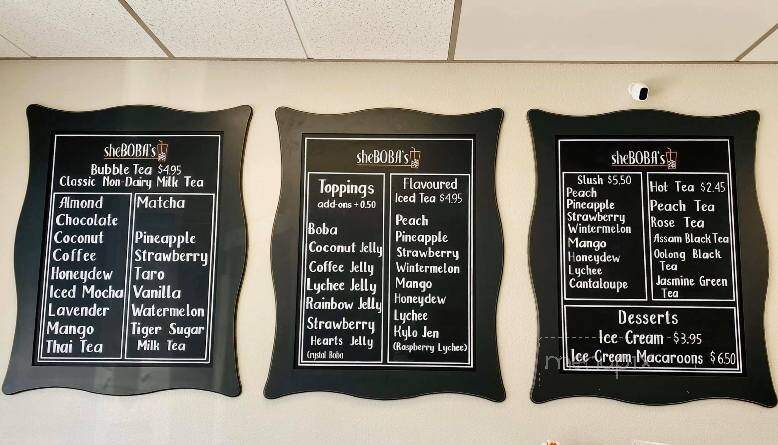 sheBOBA's
Bubble Tea $4.95
Classic Non-Dairy Milk Tea
Almond
Chocolate
Coconut
Coffee
Honeydew
Iced Mocha
Lavender
Mango
Thai Tea
Matcha
Pineapple
Strawberry
Taro
Vanilla
Watermelon
Tiger Sugar
Milk Tea
sheBOBA's
Toppings
add-ons +0.50
Boba
Coconut Jelly
Coffee Jelly
Lychee Jelly
Rainbow Jelly
Strawberry
Hearts Jelly
Crystal Boba
Flavoured
Iced Tea $4.95
Peach
Pineapple
Strawberry
Wintermelon
Mango
Honeydew
Lychee
Kylo Jen
(Raspberry Lychee)
sheBOBA's
Slush $5.50
Peach
Pineapple
Strawberry
Wintermelon
Mango
Honeydew
Lychee
Cantaloupe
Hot Tea $2.45
Peach Tea
Rose Tea
Assam Black Tea
Oolong Black
Tea
Jasmine Green
Tea
Desserts
Ice Cream - $3.95
Ice Cream Macaroons $6.50
menupix